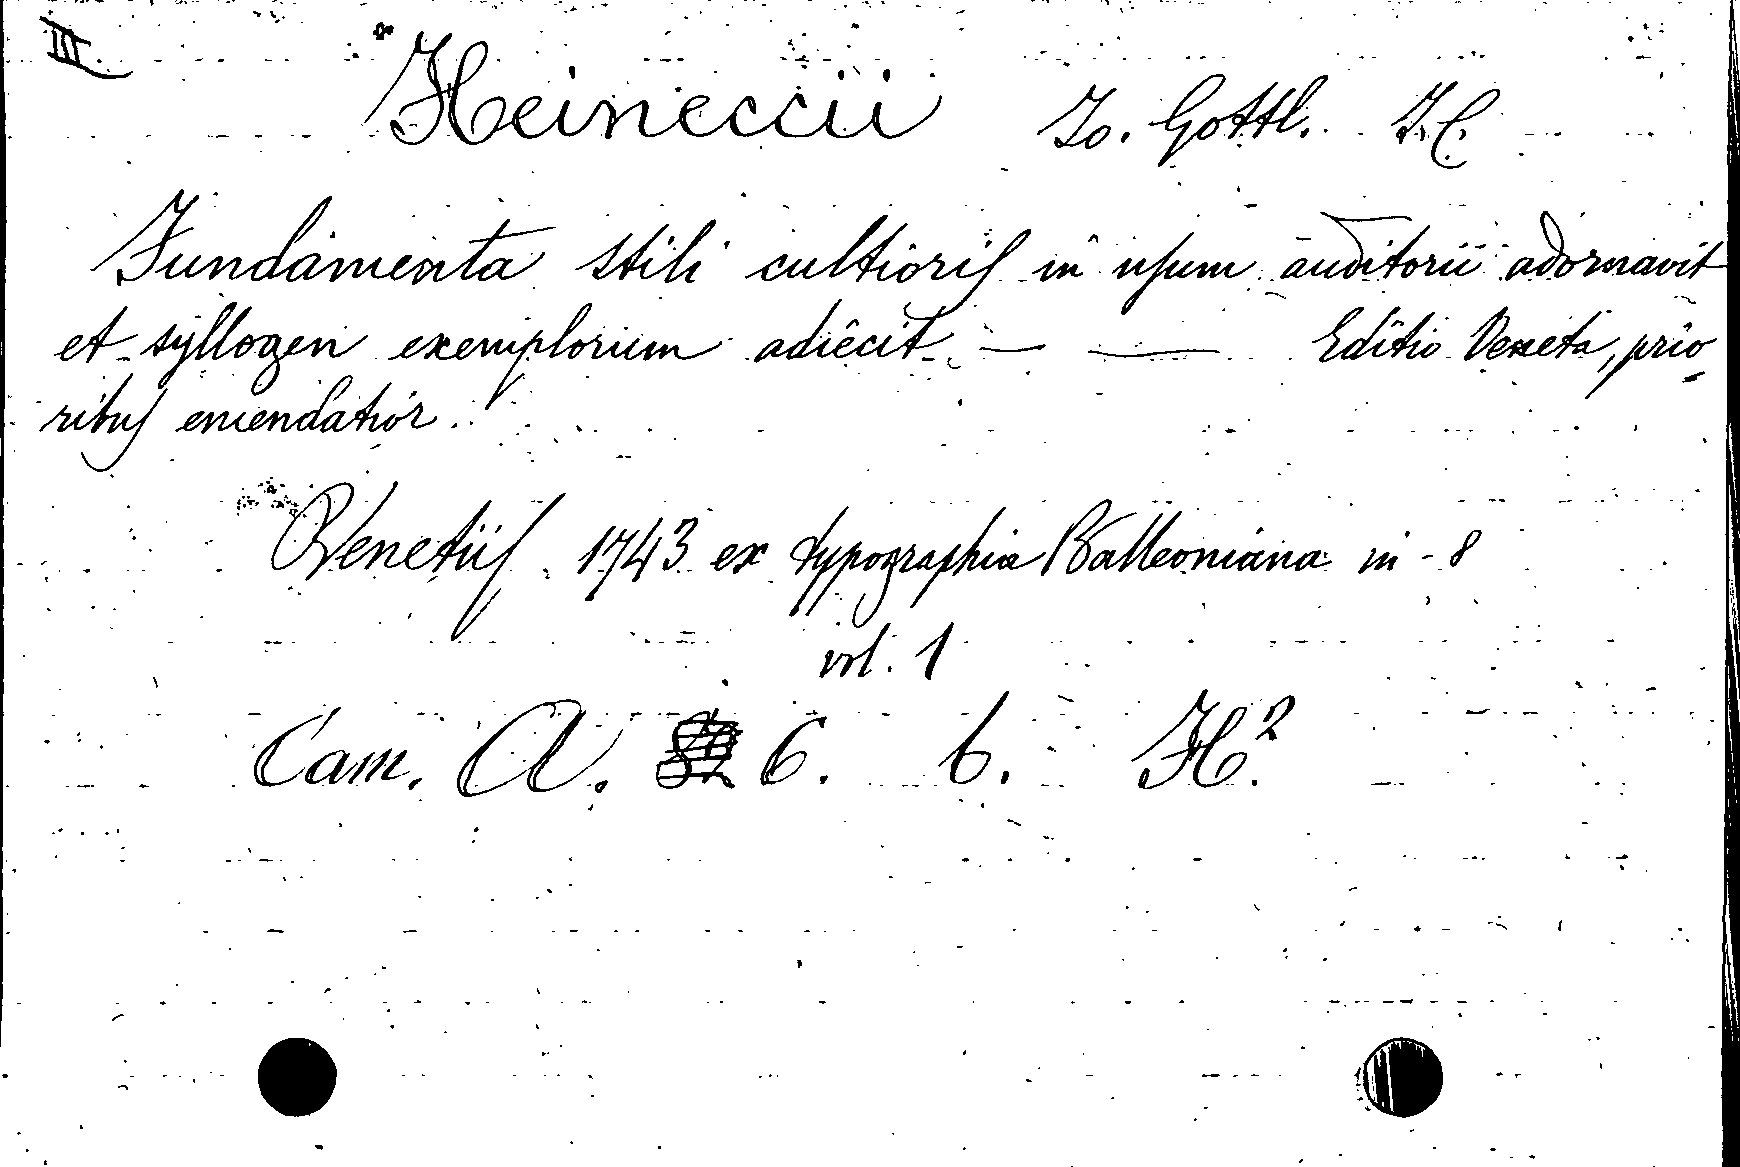 III.
Heineccii Jo. Gottl. J.C.
Fundamenta stili cultioris in usum auditorii adornavit
et syllogen exemplorum adiecit — — Editio Veneta, prio-
ribus emendatior.
Venetiis 1743 ex typographia Balleoniana in-8
vol. 1
Cam. A. 6. b. H.2